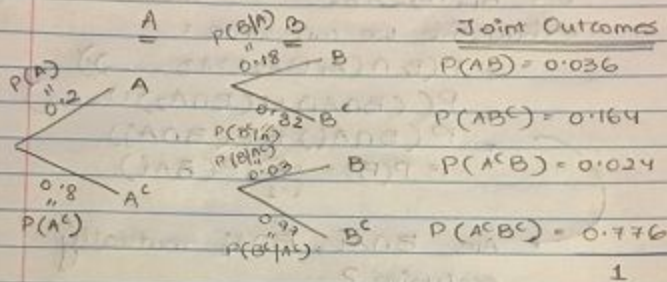 A P(B|A) B Joint Outcomes
P(A) " 0.2 A 0.18 B P(AB) = 0.036
0.82 Bᶜ P(Bᶜ|A) P(ABᶜ) = 0.164
P(B|Aᶜ) " 0.03 B P(AᶜB) = 0.024
0.8 " P(Aᶜ) Aᶜ
0.97 " P(Bᶜ|Aᶜ) Bᶜ P(AᶜBᶜ) = 0.776
1